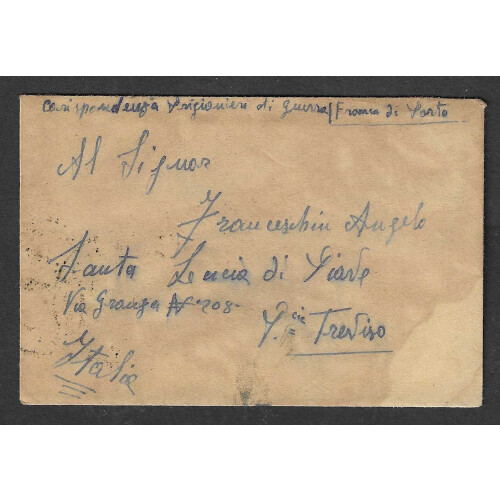 Corispondenza Prigioniere di guerra / Franca di Porto
Al Signor
Franceschin Angelo
Santa Lucia di Piave
Via Granza Nº 208
P.cia Treviso
Italia